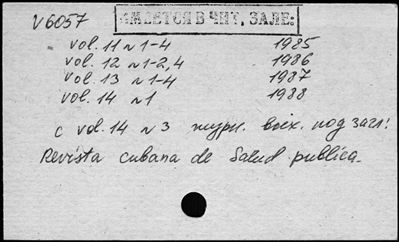 V6057
ИМЕЕТСЯ В ЧИТ. ЗАЛЕ:
vol. 11 n 1-4 1985
vol. 12 n 1-2, 4 1986
vol. 13 n 1-4 1987
vol. 14 n 1 1988
с vol. 14 n 3 журн. вых. под загл!
Revista cubana de Salud publica.